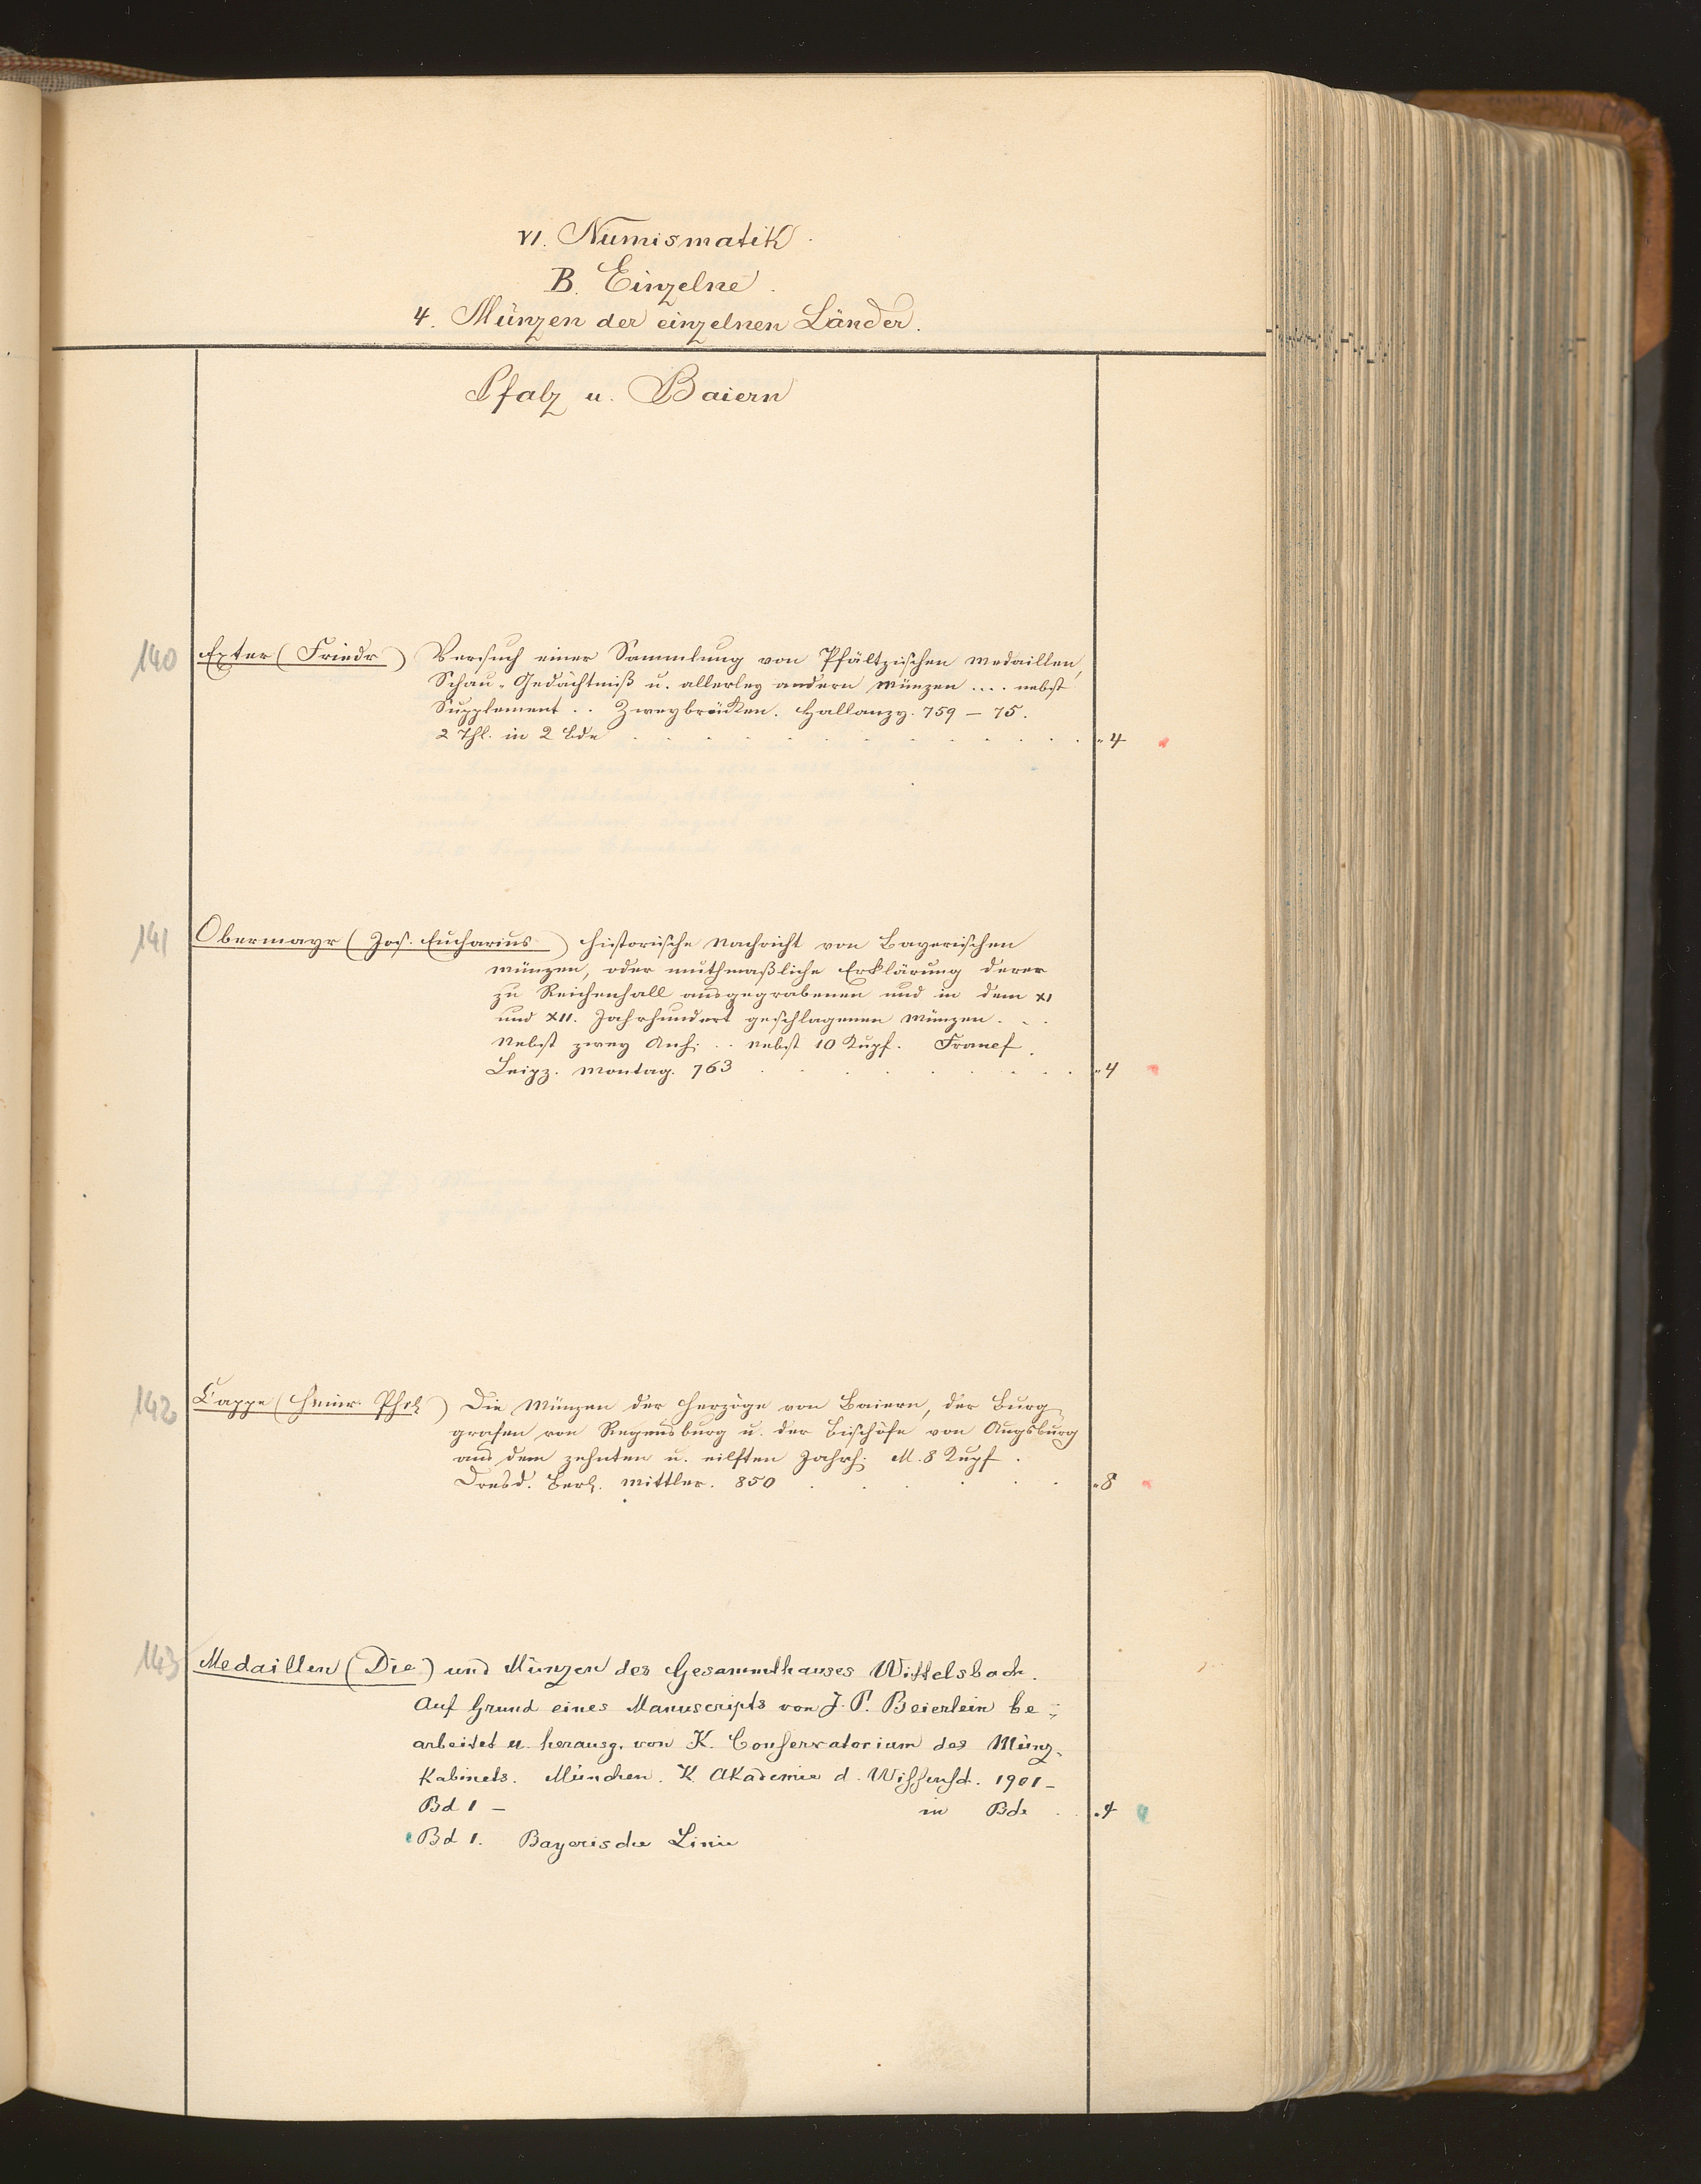 VI. Numismatik.
B. Einzelne.
4. Münzen der einzelnen Länder.
Pfalz u. Baiern
140 Exter (Friedr) Versuch einer Sammlung von Pfältzischen Medaillen,
Schau-Gedächtniß u. allerley andern Münzen .... nebst
Supplement .. Zweybrücken. Hallanzy. 759 – 75.
2 Thl. in 2 Bde . . . . . . . . . . "4
141 Obermayr (Jos. Eucharius) Historische Nachricht von Bayerischen
Münzen, oder muthmaßliche Erklärung derer
zu Reichenhall ausgegrabenen und in dem XI
und XII. Jahrhundert geschlagenen Münzen. . .
Nebst zwey Anh: .. nebst 10 Kupf. Francf.
Leipz. Montag. 763 . . . . . . . . "4
142 Cappe (Heinr. Phil) Die Münzen der Herzöge von Baiern, der Burg
grafen von Regensburg u. der Bischöfe von Augsburg
aus dem zehnten u. eilften Jahrh: M. 8 Kupf.
Dresd. Berl. Mittler. 850 . . . . . . "8
143 Medaillen (Die) und Münzen des Gesammthauses Wittelsbach.
Auf Grund eines Manuscripts von J. P. Beierlein be-
arbeitet u. herausg. von K. Conservatorium des Münz-
Kabinets. München. K. Akademie d. Wissensch. 1901-
Bd 1 – in Bde . . "4
Bd 1. Bayerische Linie